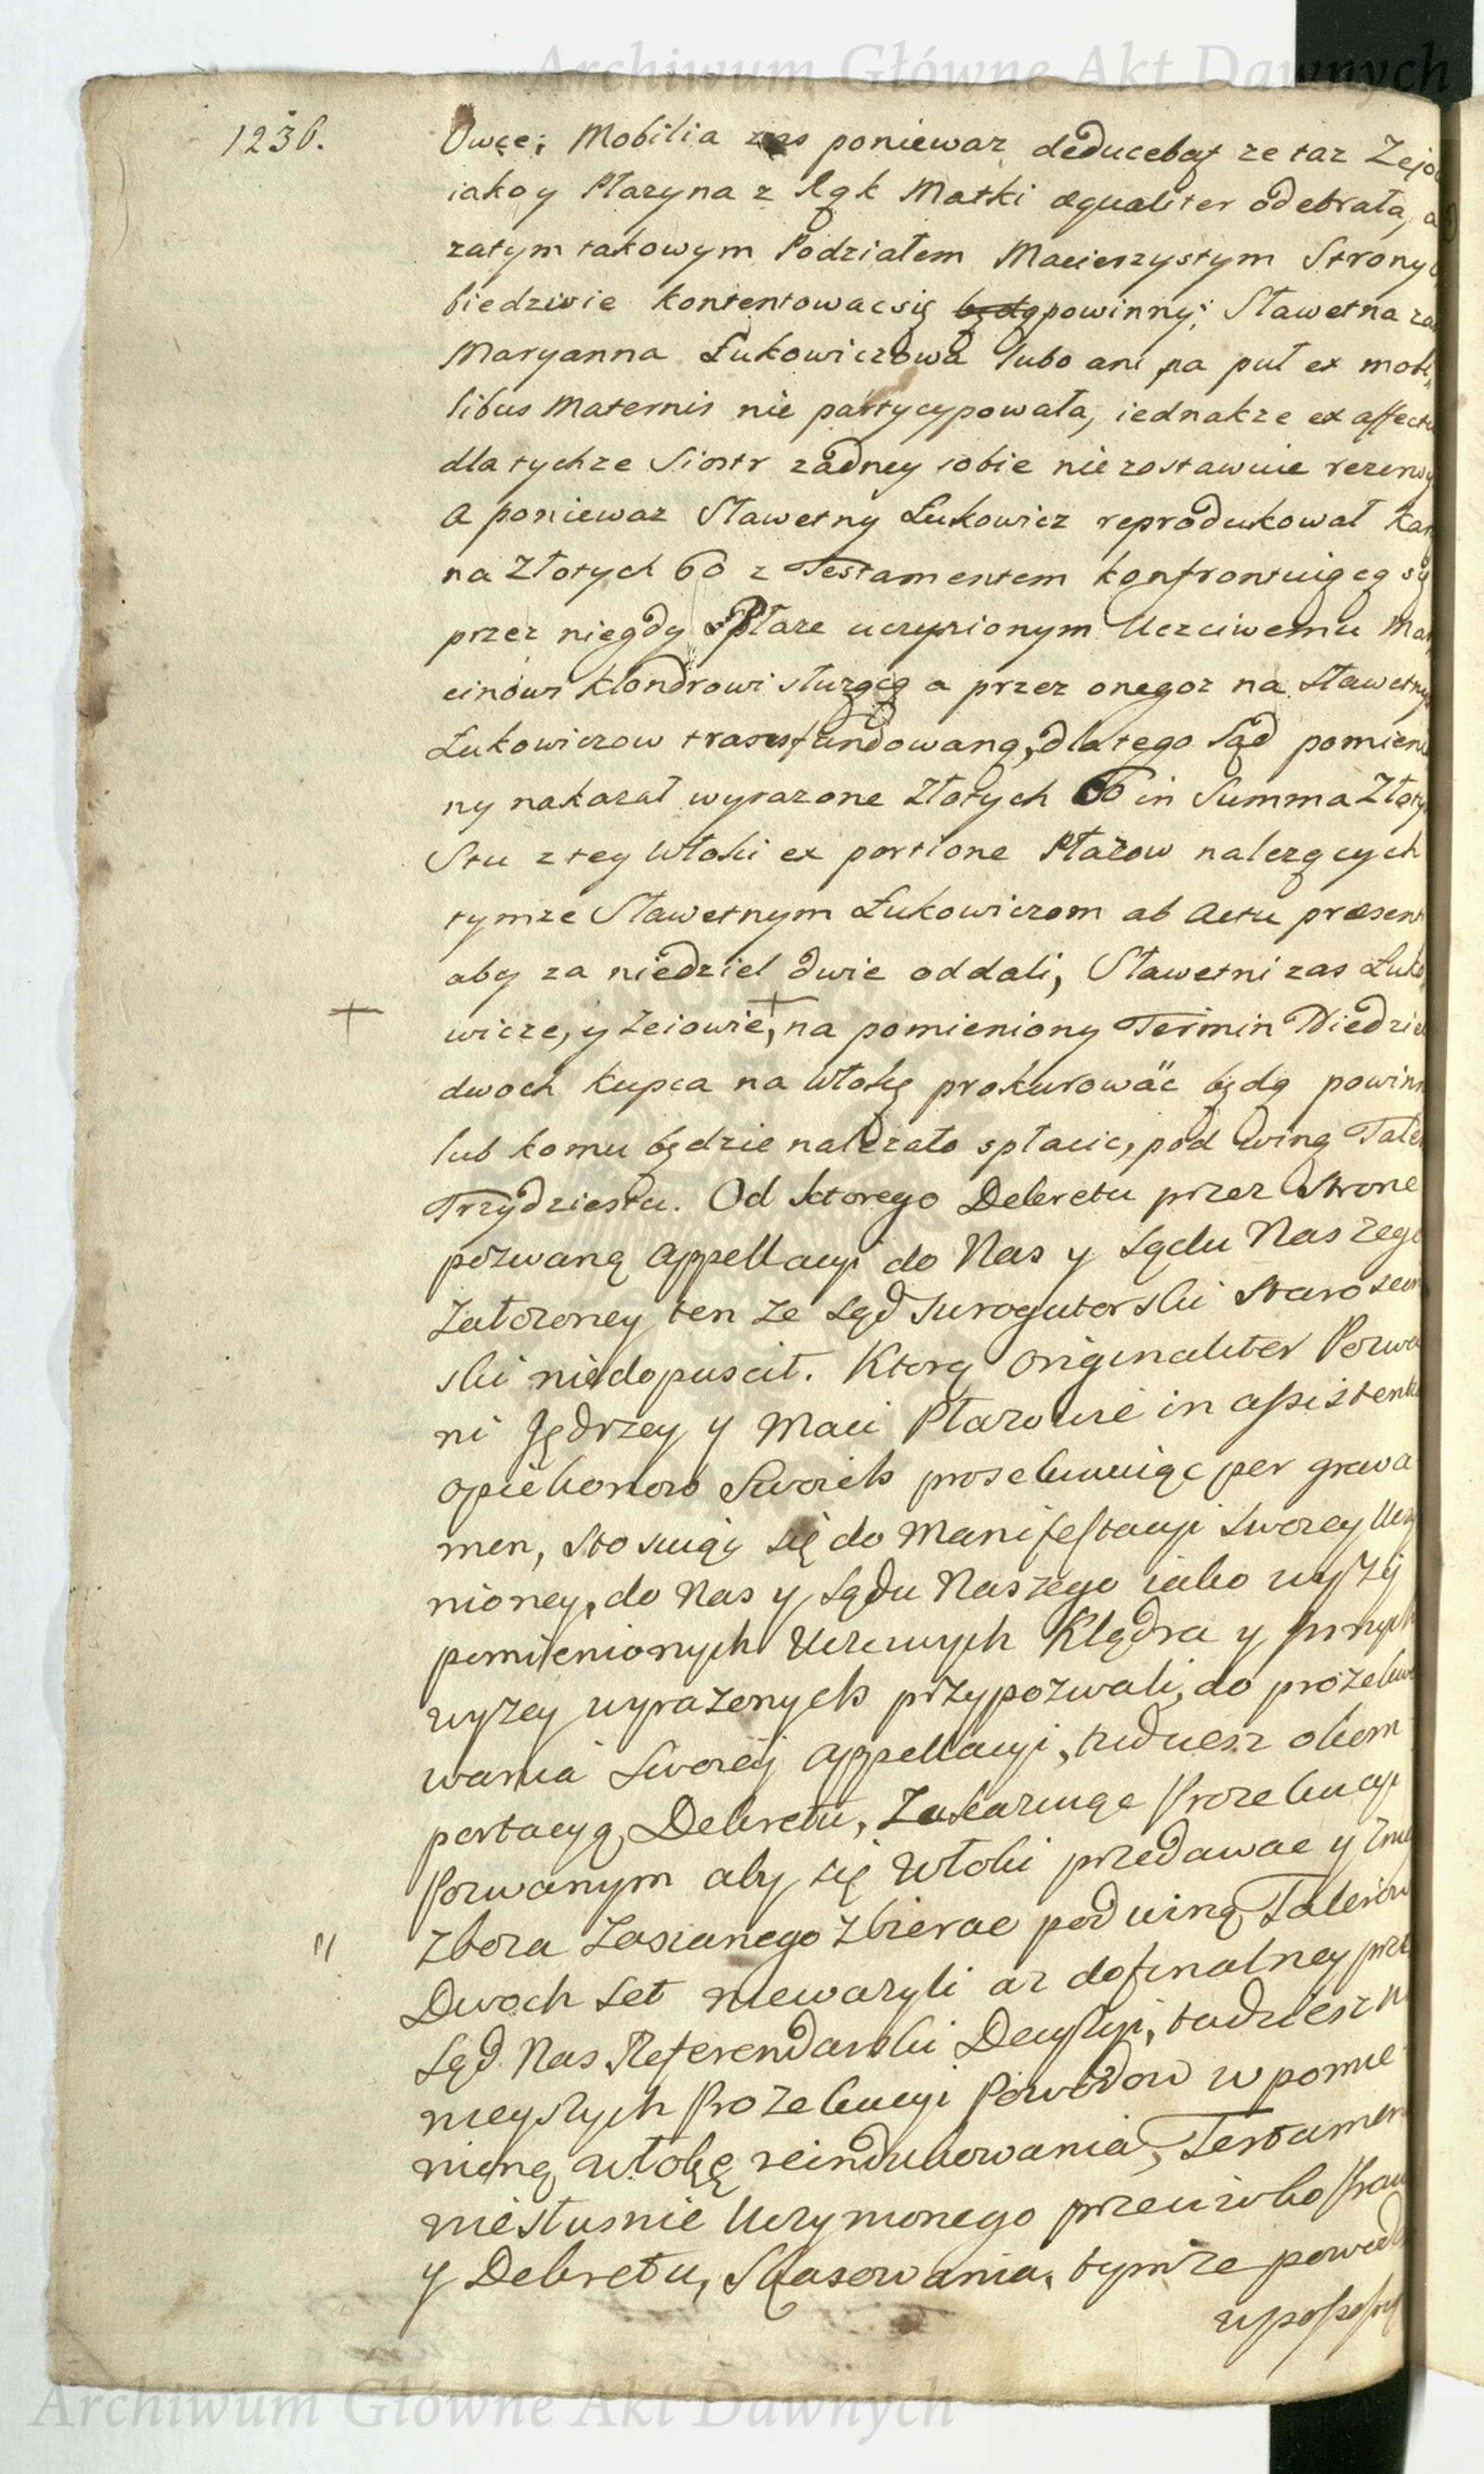 Archiwum Główne Akt Dawnych
1236.
Owce; Mobilia zas poniewaz deducebat ze taz Zejo
iako y Płazyna z Rąk Matki æqualiter odebrała, a
zatym takowym Podziałem Macierzystym Strony
biedzwie kontentowac się będą powinny; Sławetna za
Maryanna Łukowiczowa lubo ani na puł ex mobi
libus Maternis nie partycypowała, iednakze ex affectu
dla tychze Siostr zadney sobie nie zostawuie rezerwy
A poniewaz Sławetny Łukowicz reprodukował Kar
na Złotych 60 z Testamentem konfrontuiącą się
przez niegdy Płaze uczynionym Uczciwemu Mar
cinowi Klondrowi słuzącą a przez onegoz na Sławetny
Łukowiczow transfundowaną, dlatego Sąd pomieni
ny nakazał wyrazone Złotych 60 in Summa Złoty
Stu z tey Włoki ex portione Płazow nalezących
tymze Sławetnym Łukowiczom ab Actu præsent
aby za niedziel dwie oddali, Sławetni zas Łuko
+ wicze, y Zeiowie,+ na pomieniony Termin Niedziel
dwoch kupca na Włokę prokurowäc będą powinn
lub komu będzie nalezało spłacic, pod winą Tale
Trzydziestu. Od ktorego Dekretu przez Strone
pozwaną Appellacyi do Nas y Sądu Naszego
Załozoney ten ze Sąd Surogatorski Starosein
ski niedopuscił. Ktorą originaliter Pozwa
ni Jędrzey y Maci Płazowie in assistentia
opiekonow Swoich prosekwuiąc per grava
men, stosuiąc się do Manifestacyi swoiey Uczy
nioney, do Nas y Sądu Naszego iako wyzey
pomienionych Uczciwych Klędra y innych
wyzey wyrazonych przypozwali, do prozekwo
wania Swoiey Appellacyi, tudziesz okom
portacyą Dekretu, Zakazuiąc Prozekucyi
Pozwanym aby się Włoki przedawac y
zboza Zasianego zbierac pod winą Talerow
" Dwoch Set niewazyli az do finalney prze
Sąd Nas Referendarski Decyzyi, tudziesz
nieyszych Prozekucyi Powodow w pomie
nioną Włokę reindukowania, Testamen
niesłusnie Uczynionego przeciwko Praw
y Dekretu, Skasowania, tymze powod
w possess
Archiwum Główne Akt Dawnych